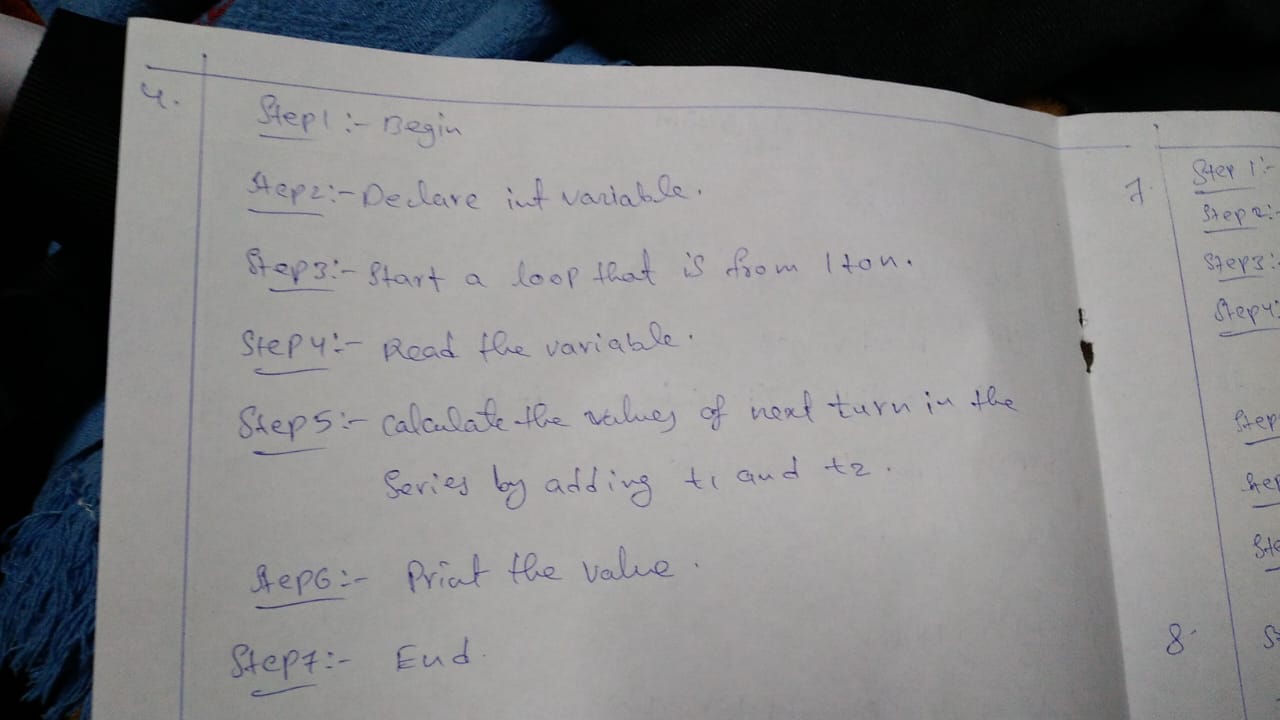 4.
Step1 :- Begin
Step2:- Declare int variable.
Step3:- Start a loop that is from 1 to n.
Step4:- Read the variable.
Step5:- Calculate the values of next turn in the
Series by adding t1 and t2.
Step6:- Print the value.
Step7:- End.
7.
Step 1:-
Step2:-
Step3:-
Step4:
Step
Step
Ste
8.
S